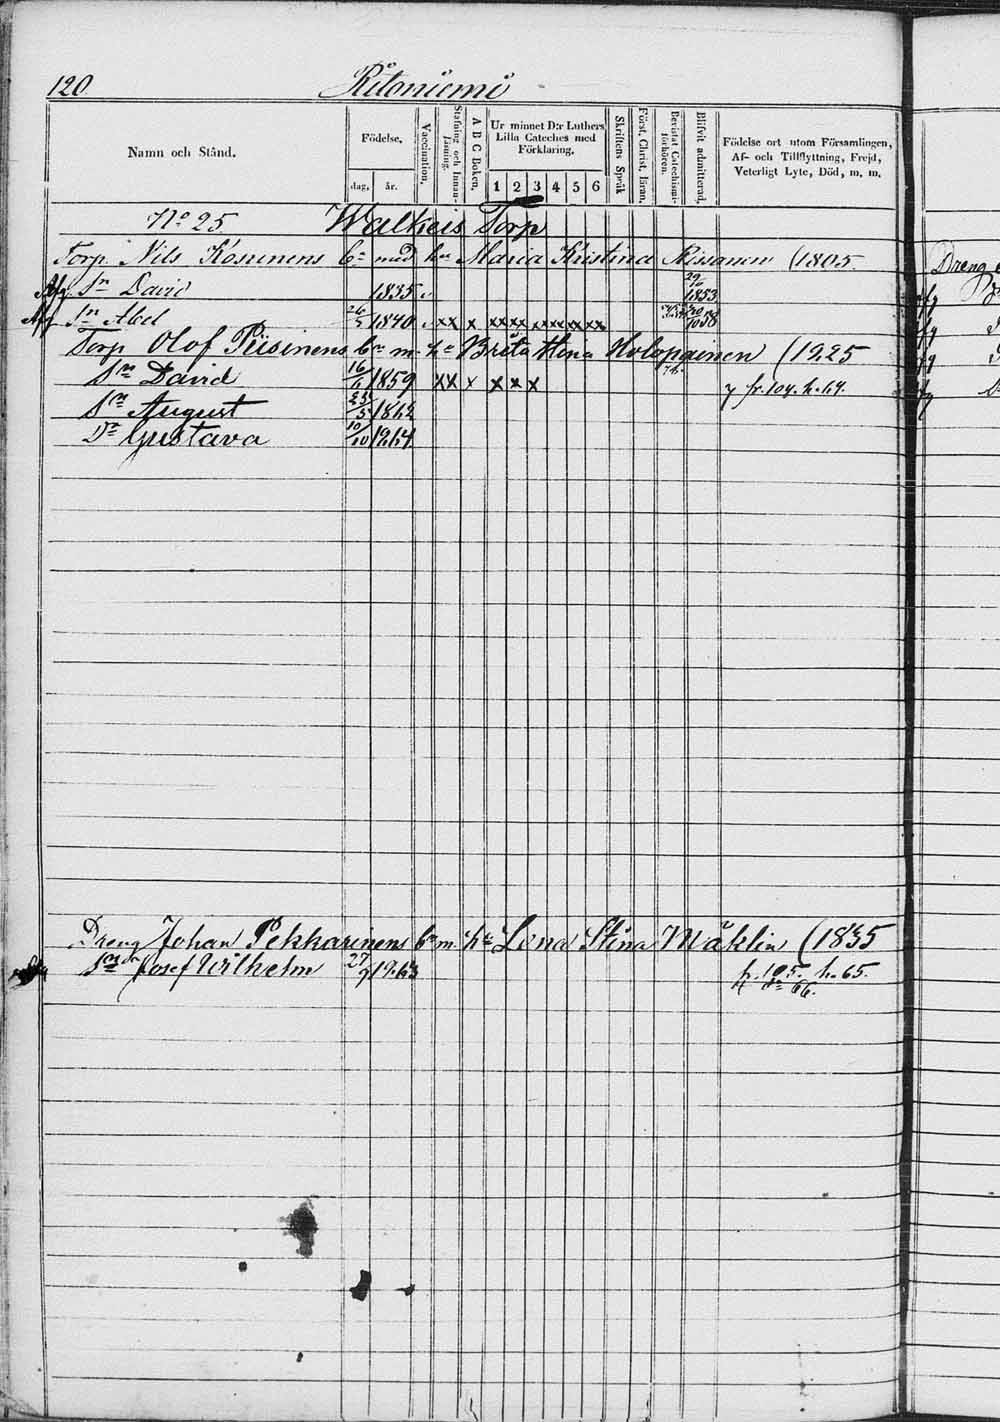 120 Ritoniemi
Namn och Stånd.
Födelse.
dag. år.
Vaccination.
Stafning och Innan-läsning.
A B C Boken.
Ur minnet D:r Luthers Lilla Cateches med Förklaring.
1 2 3 4 5 6
Skriftens Språk
Först. Christ. läran.
Bevistat Catechismi-förhören.
Blifvit admitterad.
Födelse ort utom Församlingen,
Af- och Tillflyttning, Frejd,
Veterligt Lyte, Död, m. m.
No 25 Walkeis Torp
Torp. Nils Kosunens bn med hu Maria Kristina Rissanen (1805
Afg Sn David 1835 1853
Afg Sn Abel 26/5 1840 xx x xx xx xx xx xx xx 58
Torp Olof Piisinens bn m. hu Brita Stina Holopainen (1825
Sn David 16/6 1859 xx x x x x fr. 104. h. 64.
Sn August 25/5 1862
Dr Gustava 10/10 1864
Dreng Johan Pekkarinens bn m. hu Lena Stina Mäklin (1835
Sn Josef Wilhelm 27/9 1863 fr. 105. h. 65.
66.
Dreng